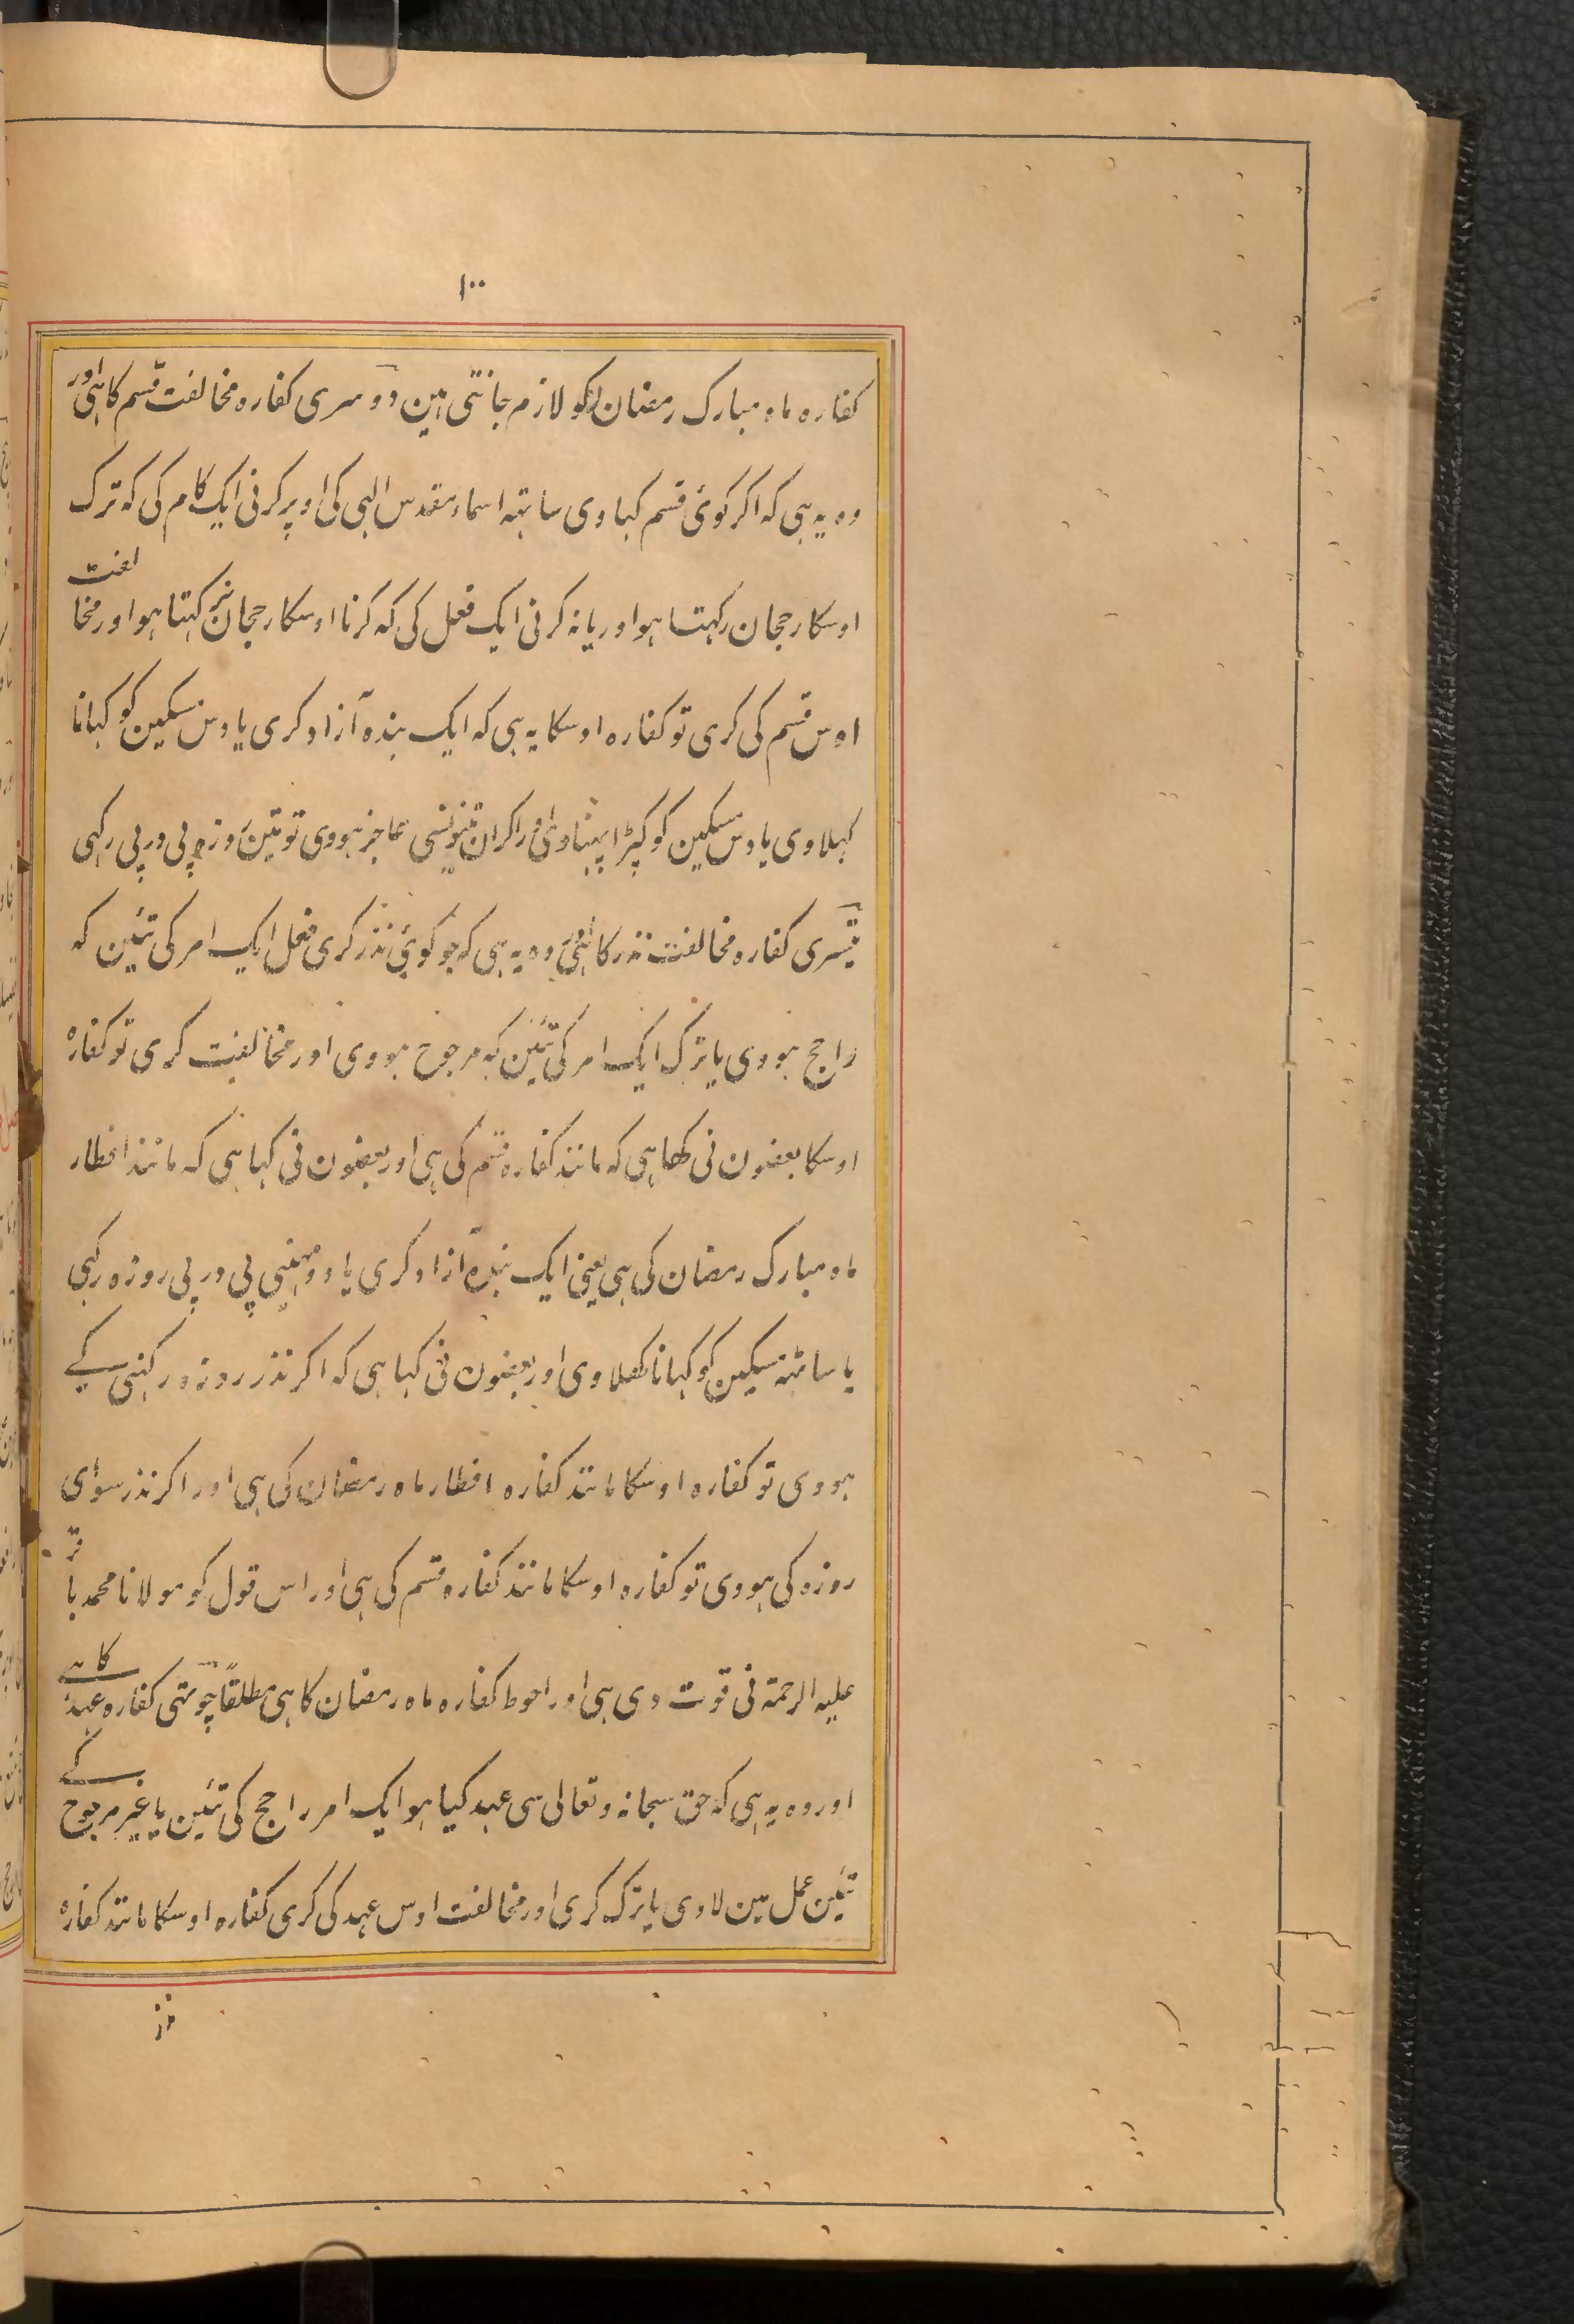 ۱۰۰
کفاره ماه مبارک رمضان کو لازم جانتی هین دوسری کفاره مخالفت قسم کا ہی اور
وه یه ہی که اکر کوئی قسم کہاوی ساتہه اسماء مقدس الہی کی اوپر کرنی ایک کام کی که ترک
اوسکا رجحان رکہتا ہو اور یا نه کرنی ایک فعل کی که کرنا اوسکا رجحان نرکہتا ہو اور مخالفت
اوس قسم کی کری تو کفاره اوسکا یه ہی که ایک بنده آزاد کری یا دس مسکین کو کہانا
کہلاوی یا دس مسکین کو کپڑا پہناوی اور اکر ان تینونسی عاجز ہووی تو تین روزه پی در پی رکہی
تیسری کفاره مخالفت نذر کا ہی اور وه یه ہی که جو کوئی نذر کری فعل ایک امر کی تئین که
راجح ہووی یا ترک ایک امر کی تئین که مرجوح ہووی اور مخالفت کری تو کفارهٔ
اوسکا بعضون نی کہا ہی که مانند کفاره قسم کی ہی اور بعضون نی کہا ہی که مانند افطار
ماه مبارک رمضان کی ہی یعنی ایک بنده آزاد کری یا دو مہینی پی در پی روزه رکہی
یا ساٹہه مسکین کو کہانا کھلاوی اور بعضون نی کہا ہی که اکر نذر روزه رکہنی کے
ہووی تو کفاره اوسکا مانند کفاره افطار ماه رمضان کی ہی اور اکر نذر سوای
روزه کی ہووی تو کفاره اوسکا مانند کفاره قسم کی ہی اور اس قول کو مولانا محمد باقر
علیه الرحمة نی قوت دی ہی اور احوط کفاره ماه رمضان کا ہی مطلقاً چوتہی کفاره عہد کا ہے
اور وه یه ہی که حق سبحانه وتعالی سی عہد کیا ہو ایک امر راجح کی تئین یا غیر مرجوح کے
تئین عمل مین لاوی یا ترک کری اور مخالفت اوس عہد کی کری کفاره اوسکا مانند کفارهٔ
نذر